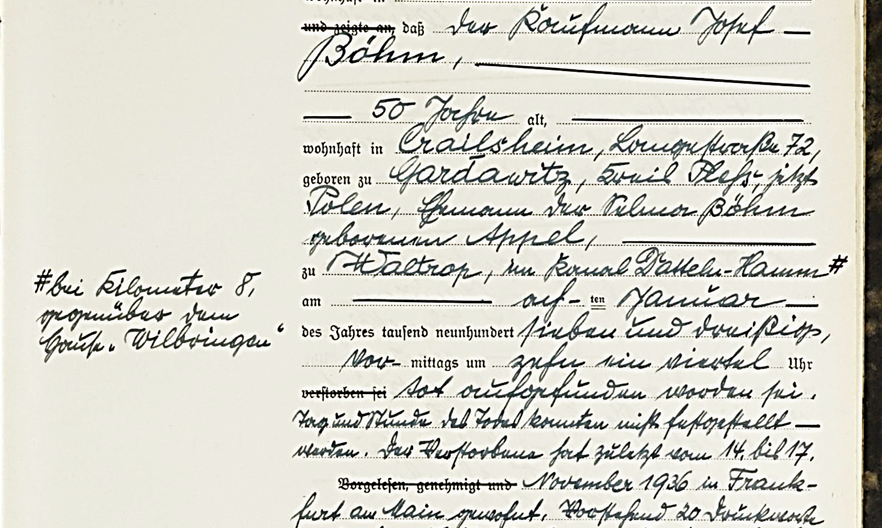 wohnhaft in
und zeigte an, daß der Kaufmann Josef
Böhm,
50 Jahre alt,
wohnhaft in Crailsheim, Langestraße 72,
geboren zu Gardawitz, Kreis Pleß, jetzt
Polen, Ehemann der Selma Böhm
geborenen Appel,
zu Waltrop, im Kanal Datteln-Hamm #
# bei Kilometer 8,
gegenüber dem
Hause "Wilbringen"
am acht-ten Januar
des Jahres tausend neunhundert sieben und dreißig,
Vor-mittags um zehn ein viertel Uhr
verstorben sei tot aufgefunden worden sei.
Tag und Stunde des Todes konnten nicht festgestellt
werden. Der Verstorbene hat zuletzt vom 14. bis 17.
Vorgelesen, genehmigt und November 1936 in Frank-
furt am Main gewohnt. Vorstehend 20 Druckworte